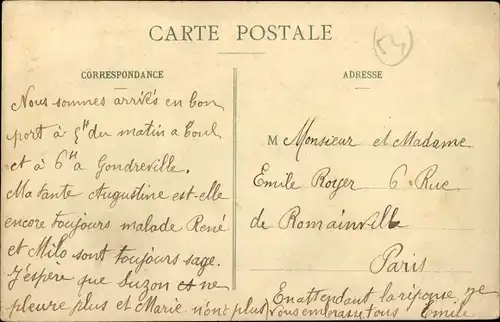 CARTE POSTALE
54
CORRESPONDANCE
ADRESSE
Nous sommes arrivés en bon
port à 5H du matin a Toul
et à 6H a Gondreville.
Ma tante Augustine est-elle
encore toujours malade René
et Milo sont toujours sage.
J'éspère que Suzon ne
pleure plus et Marie n'ont plus
M Monsieur et Madame
Emile Royer 6 Rue
de Romainville
Paris
En attendant la réponse je
vous embrasse tous Emile